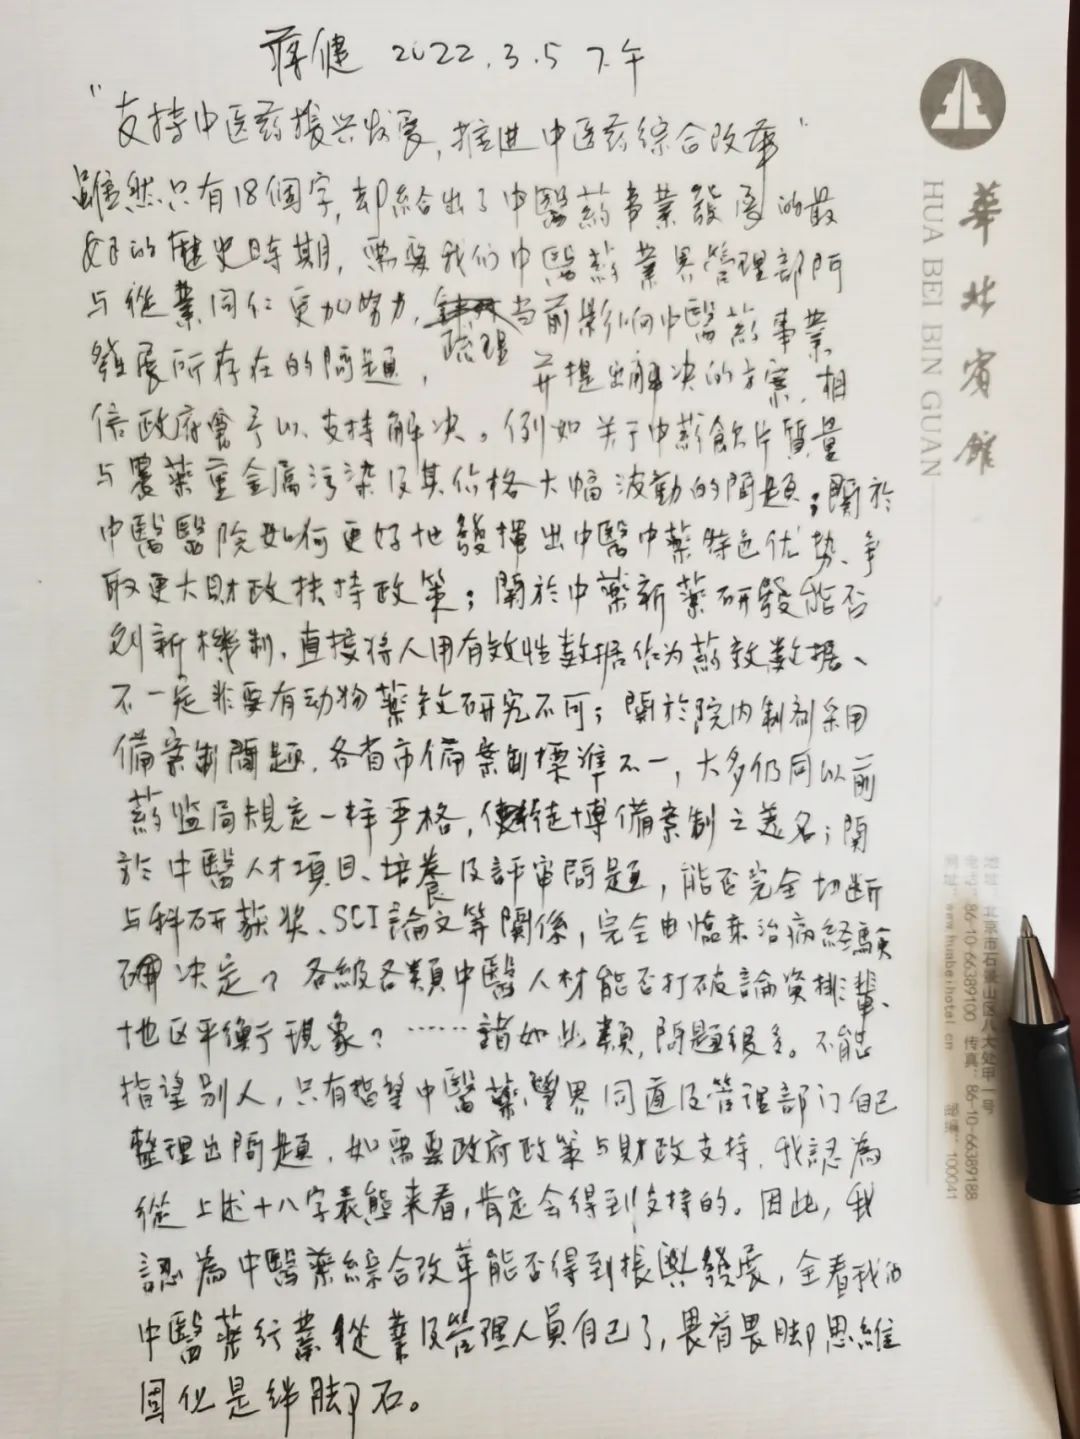 蒋健 2022.3.5 下午
"支持中医药振兴发展,推进中医药综合改革"
雖然只有18個字,却給出了中醫葯事業發展的最
好的歷史时期,需要我们中醫葯業界管理部門
与從業同仁更加努力,当前影响中醫葯事業
發展所存在的問題,梳理并提出解决的方案,相
信政府會予以支持解决。例如关于中葯飲片質量
与農薬重金属污染及其价格大幅波動的問題;關於
中醫醫院如何更好地發揮出中醫中薬特色优势、争
取更大財政扶持政策;關於中薬新薬研發能否
创新機制,直接将人用有效性数据作为葯效数据、
不一定非要有动物薬效研究不可;關於院内制剂采用
備案制問題,各省市備案制標準不一,大多仍同以前
葯监局規定一样严格,使徒博備案制之美名;關
於中醫人才項目、培養及評审問題,能否完全切断
与科研获奖、SCI論文等關係,完全由臨床治病経験
来决定?各級各類中醫人材能否打破論資排輩、
地区平衡予現象?……諸如此類,問題很多。不能
指望别人,只有指望中醫薬業界同道及管理部门自己
整理出問題,如需要政府政策与財政支持,我認為
從上述十八字表態来看,肯定会得到支持的。因此,我
認為中醫薬綜合改革能否得到振興發展,全看我们
中醫薬行業從業及管理人員自己了,畏首畏脚思維
固化是绊脚石。
華北賓館
HUA BEI BIN GUAN
地址:北京市石景山区八大处甲一号
电话:86-10-66389100 传真:86-10-66389188
网址:www.huabeihotel.cn 邮编:100041